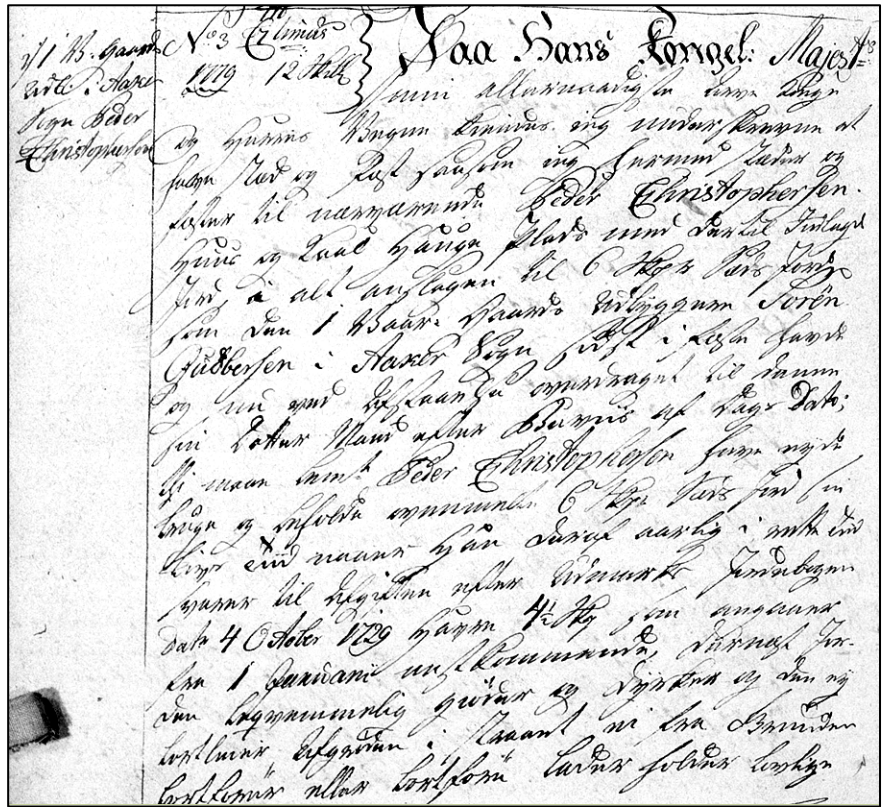 til 1 V. Gaards
udb: i Aaker
Sogn Peder
Christophersen
No 3
1779 12 Skill
Paa Hans Kongel: Majests
som allernaadigste Herre
og Herres Vegne kiendes ieg underskrevne at
have sted og fæst saasom ieg hermed steder og
fæster til nærværende Peder Christophersen
Huus og Kaal Hauge Plads med dertil Indlagde
Jord, i alt anslagen til 6 Skpr Sæds Jord,
som den 1 Vaar: Gaards Udbyggere Sorën
Gudbersen i Aaker Sogn sidst i Fæste havde
og nu ved Afstaaelse overdraget til denne
sin Datter Mand efter Beviis af Dags Dato;
Thi maae bemt Peder Christophersen have nyde
bruge og beholde ovenmelte 6 Skpr Sæds Jord sin
Livs Tiid naar Han deraf aarlig i rette Tiid
svarer til Afgiften efter Udmarks Jordebogen
Dato 4 October 1729 Havre 4½ Skp som angaaer
fra 1 Januari nestkommende, dernest Jor-
den beqvemmelig gjøder og dyrker og den ey
bortleier, Afgrøden i Straaet ei fra Grunden
bortfører eller bortføre lader holder lovlige